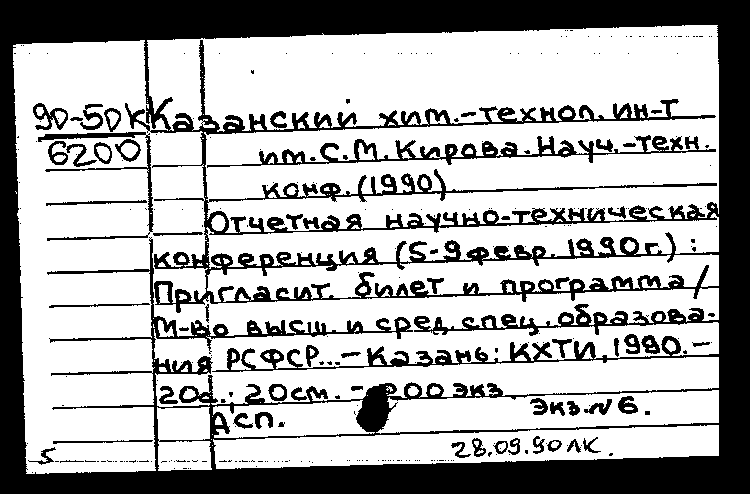 90-50К Казанский хим.-технол. ин-т
6200 им. С.М. Кирова. Науч.-техн.
конф. (1990).
Отчетная научно-техническая
конференция (5-9 февр. 1990г.) :
Пригласит. билет и программа /
М-во высш. и сред. спец. образова-
ния РСФСР... - Казань: КХТИ, 1990. -
20с.; 20см. - 200 экз.
АСП. Экз. № 6.
5 28.09.90 ЛК.